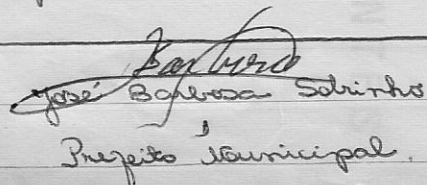 Barbosa
José Barbosa Sobrinho
Prefeito Municipal.